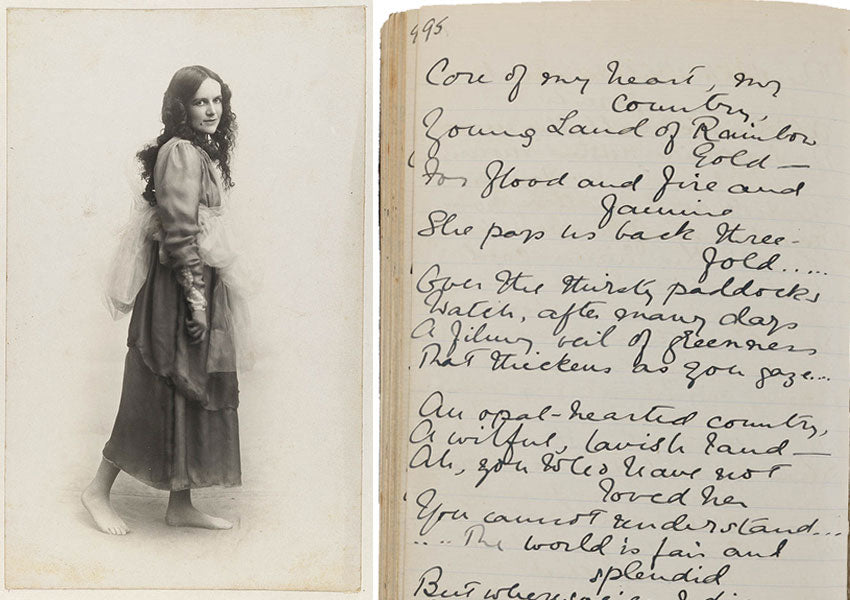 495
Core of my heart, my
country,
Young Land of Rainbow
Gold —
For flood and fire and
famine
She pays us back three-
fold......
Over the thirsty paddocks
Watch, after many days
A filmy veil of greenness
That thickens as you gaze...
An opal-hearted country,
A wilful, lavish land —
Ah, you who have not
loved her
You cannot understand...
.... The world is fair and
splendid
But whensoe'er I die